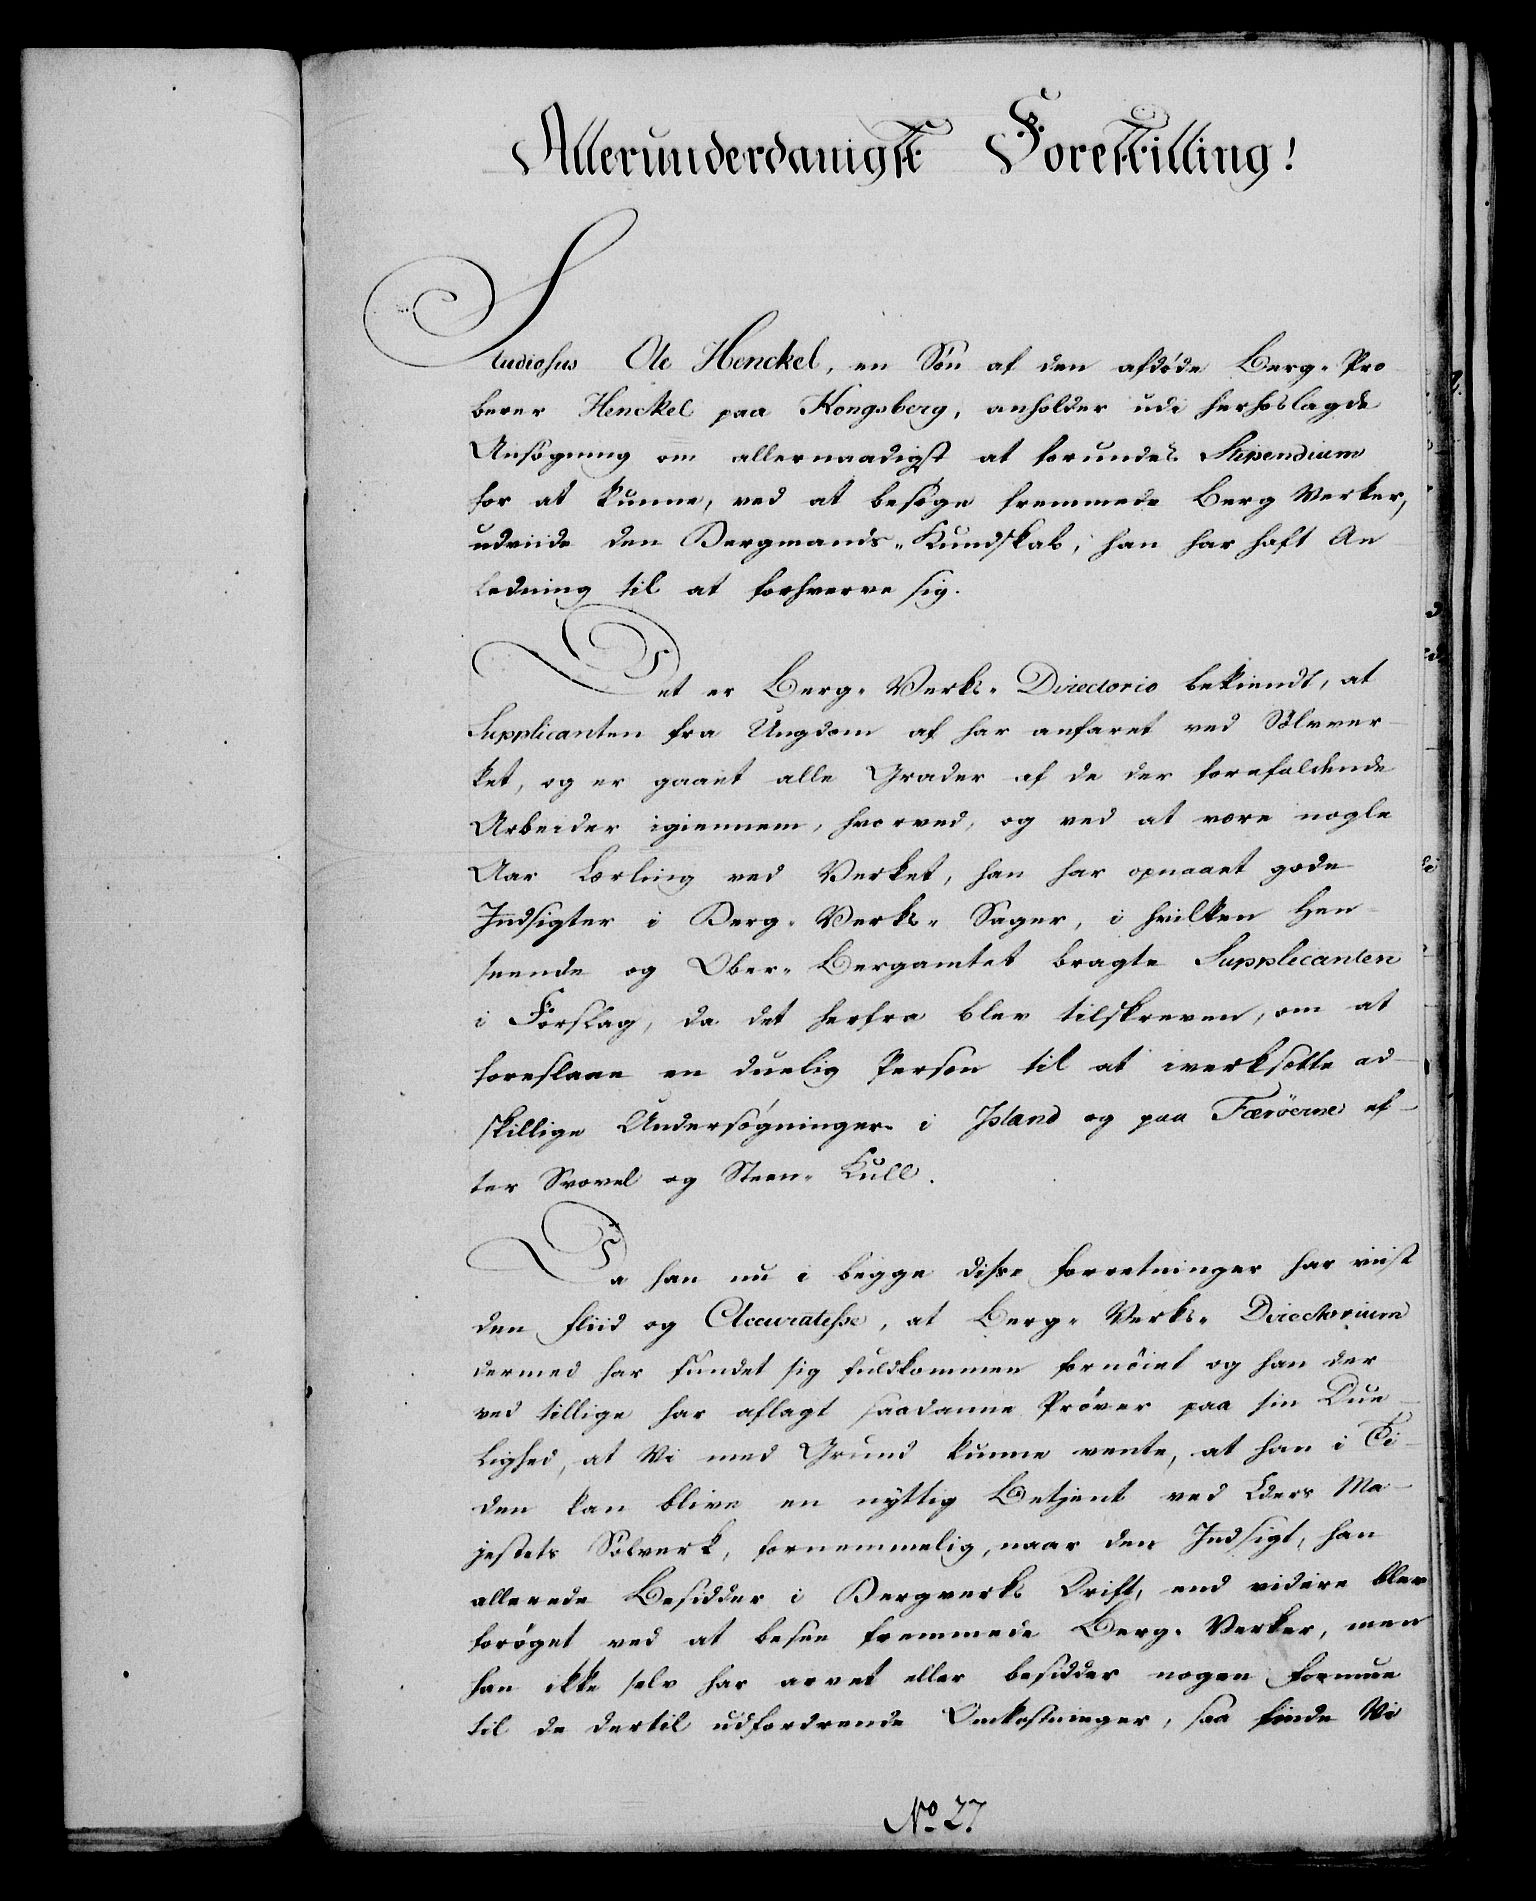 Allerunderdanigst Forestilling!
Studiosus Ole Henckel, en Søn af den afdøde Berg-Pro
berer Henckel paa Kongsberg, anholder udi herhoslagde
Ansøgning om allernaadigst at forundes Stipendium
for at kunne, ved at besøge fremmede Berg Verker,
udviide den Bergmands-Kundskab, han har haft An
ledning til at forhverve sig.
Det er Berg-Verks-Directorio bekiendt, at
Supplicanten fra Ungdom af har anfaret ved Sølvver-
ket, og er gaaet alle Grader af de der forefaldende
Arbeider igiennem, hvorved, og ved at være nogle
Aar Lærling ved Verket, han har opnaaet gode
Indsigter i Berg-Verks-Sager, i hvilken Hen-
seende og Ober-Bergamtet bragte Supplicanten
i Forslag, da det herfra blev tilskreven, om at
foreslaae en duelig Person til at iverksætte ad-
skillige Undersøgninger i Island og paa Færöerne ef-
ter Svovel og Steen-Kull.
Da han nu i begge disse forretninger har viist
den fliid og Accuratesse, at Berg-Verks-Directorium
dermed har fundet sig fuldkommen fornøiet og han der
ved tillige har aflagt saadanne Prøver paa sin Due-
lighed, at Vi med Grund kunne vente, at han i Ti-
den kan blive en nyttig Betjent ved Eders Ma-
jestets Sølverk, fornemmelig, naar den Indsigt, han
allerede Besidder i Bergverks Drift, end videre blev
forøget ved at besee fremmede Berg-Verker, men
han ikke selv har arvet eller besidder nogen formue
til de dertil udfordrende Omkostninger, saa finde Vi
No 27